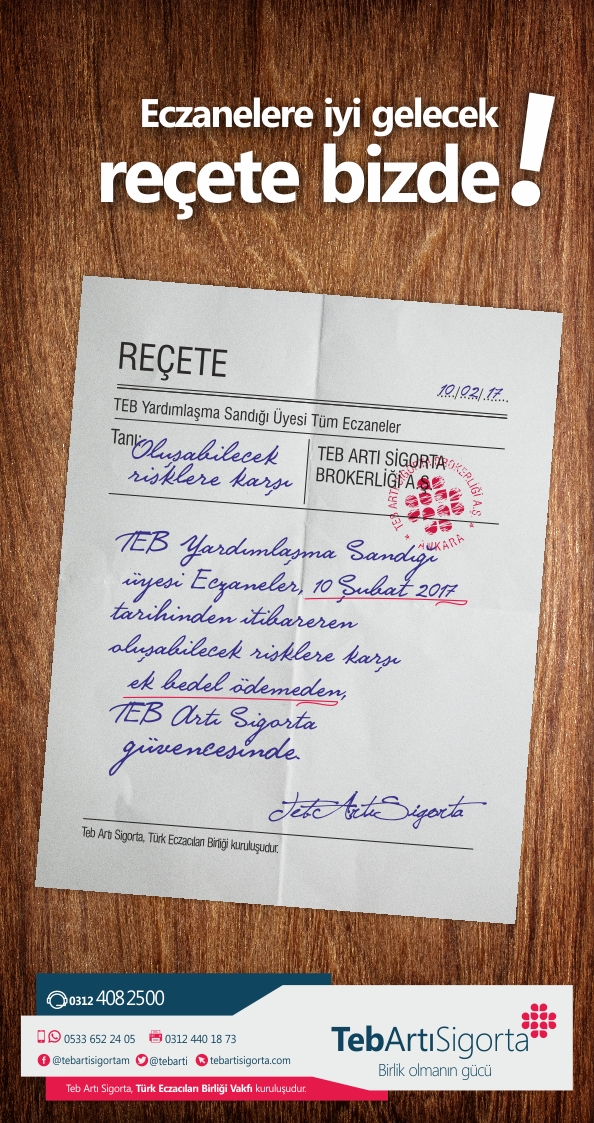 Eczanelere iyi gelecek
reçete bizde!
REÇETE
10/02/17
TEB Yardımlaşma Sandığı Üyesi Tüm Eczaneler
Tanı:
Oluşabilecek
risklere karşı
TEB ARTI SİGORTA
BROKERLİĞİ A.Ş.
* TEB ARTI SİGORTA BROKERLİĞİ A.Ş. *
ANKARA
TEB Yardımlaşma Sandığı
üyesi Eczaneler, 10 Şubat 2017
tarihinden itibareren
oluşabilecek risklere karşı
ek bedel ödemeden,
TEB Artı Sigorta
güvencesinde.
Teb Artı Sigorta
Teb Artı Sigorta, Türk Eczacıları Birliği kuruluşudur.
0312 408 2500
0533 652 24 05 0312 440 18 73
@tebartisigortam @tebarti tebartisigorta.com
TebArtıSigorta
Birlik olmanın gücü
Teb Artı Sigorta, Türk Eczacıları Birliği Vakfı kuruluşudur.